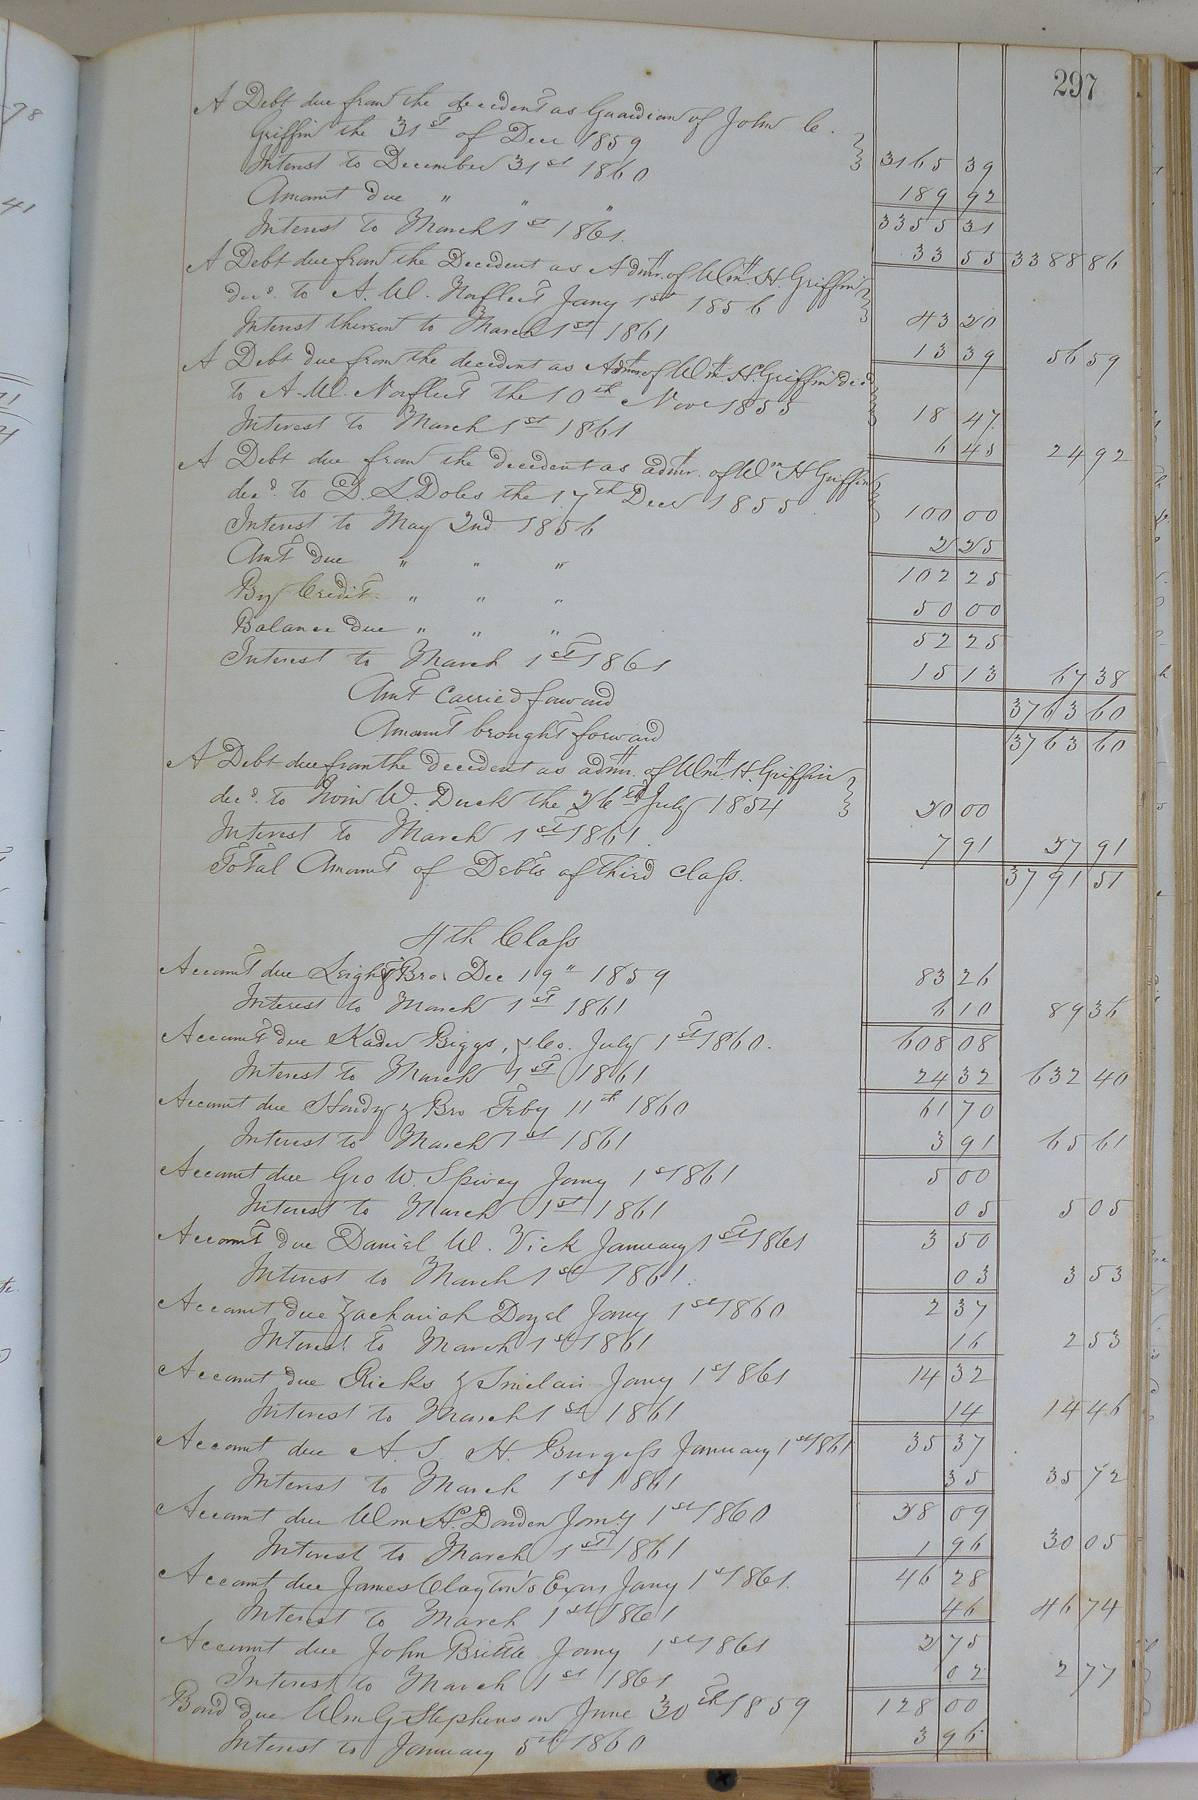 297
A Debt due from the decedent as Guardian of John C.
Griffin the 31st of Decr 1859 3165 39
Interest to December 31st 1860 189 92
Amount due " " " 3355 31
Interest to March 1st 1861. 33 55 3388 86
A Debt due from the Decedent as Admr. of Wm. H. Griffin
decd. to A. W. Norfleet Jany 1st 1856 43 20
Interest thereon to March 1st 1861 13 39 56 59
A Debt due from the decedent as Admr of Wm H. Griffin decd
to A. W. Norfleet the 10th Novr 1855 18 47
Interest to March 1st 1861 6 45 24 92
A Debt due from the decedent as admr. of Wm H Griffin
decd. to D. L Doles the 17th Decr 1855 100 00
Interest to May 2nd 1856 2 25
Amt due " " " 102 25
By Credit " " " 50 00
Balance due " " " 52 25
Interest to March 1st 1861 15 13 67 38
Amt Carried forward 3763 60
Amount brought forward 3763 60
A Debt due from the decedent as admr. of Wm H. Griffin
decd. to W. Duck the 26th July 1854 20 00
Interest to March 1st 1861. 7 91 27 91
Total Amount of Debts of third class. 3791 51
4th Class
Account due Leight & Bro. Dec 19" 1859 83 26
Interest to March 1st 1861 6 10 89 36
Account due Kader Biggs, & Co. July 1st 1860. 608 08
Interest to March 1st 1861 24 32 632 40
Account due Hardy & Bro Feby 11th 1860 61 70
Interest to March 1st 1861 3 91 65 61
Account due Geo W. Spivey Jany 1st 1861 5 00
Interest to March 1st 1861 05 5 05
Account due Daniel W. Vick January 1st 1861 3 50
Interest to March 1st 1861. 03 3 53
Account due Zachariah Doyel Jany 1st 1860 2 37
Interest to March 1st 1861 16 2 53
Account due Ricks & Sinclair Jany 1st 1861 14 32
Interest to March 1st 1861 14 14 46
Account due A. S. H. Burgess January 1st 1861 35 37
Interest to March 1st 1861 35 35 72
Account due Wm H. Dowden Jany 1st 1860 28 09
Interest to March 1st 1861 1 96 30 05
Account due James Clayton's Exors Jany 1st 1861. 46 28
Interest to March 1st 1861 46 46 74
Account due John Brittle Jany 1st 1861 2 75
Interest to March 1st 1861 02 2 77
Bond due Wm G Stephenson June 30th 1859 128 00
Interest to January 5th 1860 3 96